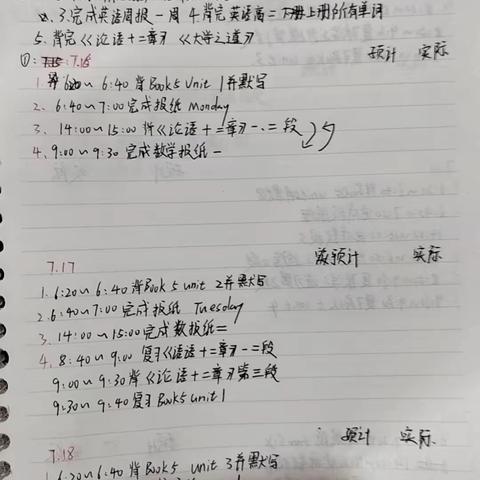 3.完成英语周报一周 4.背完英语高二上册所有单词
5. 背完《论语十二章》《大学之道》
预计 实际
①: 7.15
1. 6:40背Book5 Unit 1并默写
2. 6:40~7:00完成报纸 Monday
3. 14:00~15:00 背《论语十二章》一、二段
4. 9:00~9:30 完成数学报纸一
7.17 预计 实际
1. 6:20~6:40背Book5 unit 2并默写
2. 6:40~7:00完成报纸 Tuesday
3. 14:00~15:00完成数报纸二
4. 8:40~9:00 复习《论语十二章》一二段
9:00~9:30背《论语十二章》第三段
9:30~9:40复习Book5 unit 1
预计 实际
7.18
1. 6:20~6:40背Book5 unit 3并默写